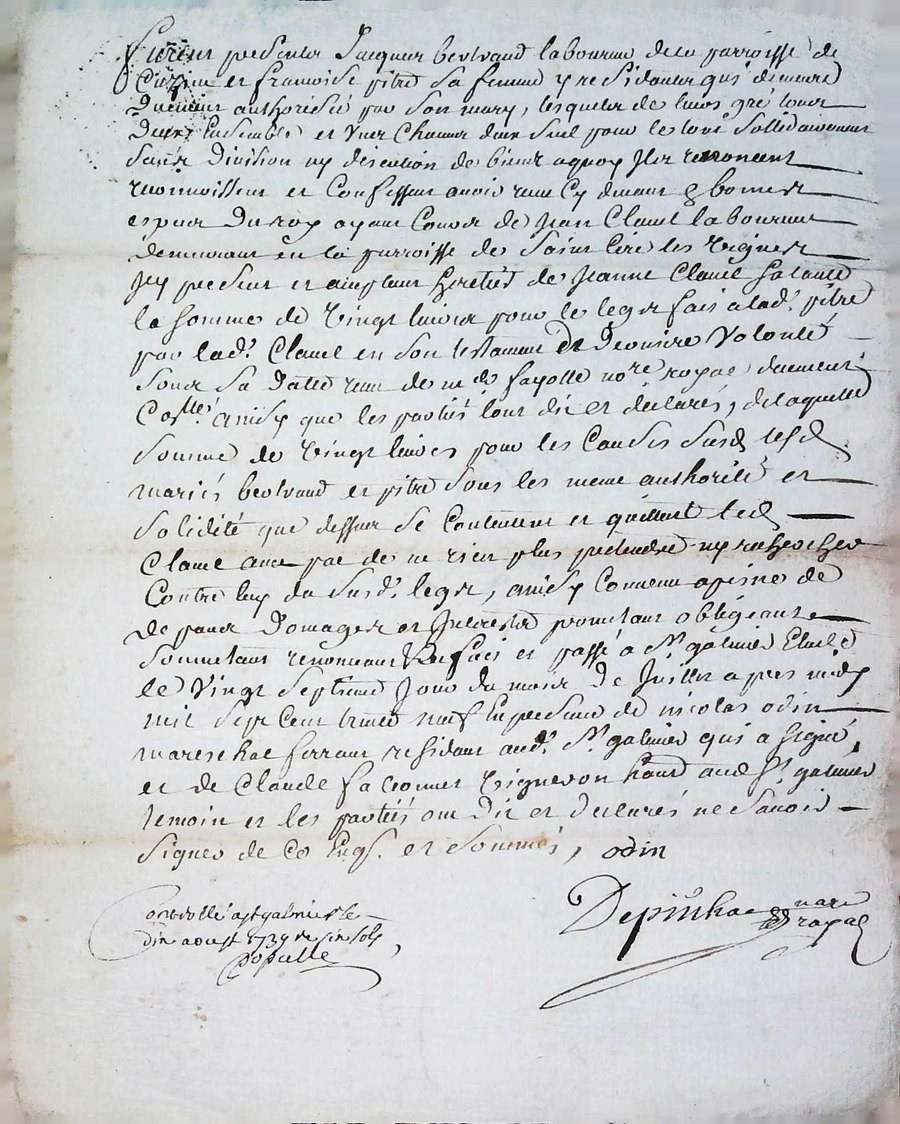 Furent presentes Jacques bertrand laboureur de la parroisse de
Cuzieu et francoise pitre sa femme y residantes qui demeure
Duement authorisée par son mary, lesquels de leurs gré tous
Deux Ensemble et L'un Chacun deux seul pour le tout sollidairement
sans Division ny discution de biens aquoy Ils renoncent
reconnoissent et Confessent avoir receu Cy devant & bonnes
espece Du roy ayant Cours de Jean Clavel laboureur
demeurant en la parroisse de Saint Cire les Vignes
Icy present et acceptant heretier de Jeanne Clavel
la somme de Vingt livres pour le legs fais a lad. pitre
par lad. Clavel en son testament Et Derniere Volonté
sous sa Datte receu de me de fayolle nore royal duement
Coslle. ainsy que les partiés lont dit et déclarés, de laquelle
somme de Vingt livres pour les Causes susd lesd
mariés bertrand et pitre sous les meme authorité et
solidité que dessus se Contentent et quittent led
Clavel avec pac de ne rien plus pretendre ny rechercher
Contre luy du susd. legs, ainsy Convenu a peine de
De tous Domages et Interests promettant obligeant
soumettant renonceant fais et passé a St. galmier Etude
le Vingt Septieme Jour du mois De Juillet apres midy
mil sept Cent trente neuf En presence de nicolas odin
mareschal ferrant residant aud. St. galmier qui a signé,
et de Claude Vigneron hant aud St. galmier
temoin et les partiés ont Dit et declarés ne savoir
signer de Ce Enqs. et sommés, odin
Controllé a st galmier le
dix aoust 1739 re six sols
Depinhac nore
royal